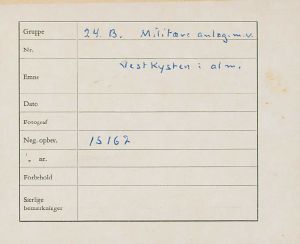 Gruppe 24. B. Militære anlæg. m. v.
Nr.
Emne Vestkysten i alm.
Dato
Fotograf
Neg. opbev. 15162
"„ nr.
Forbehold
Særlige
bemærkninger